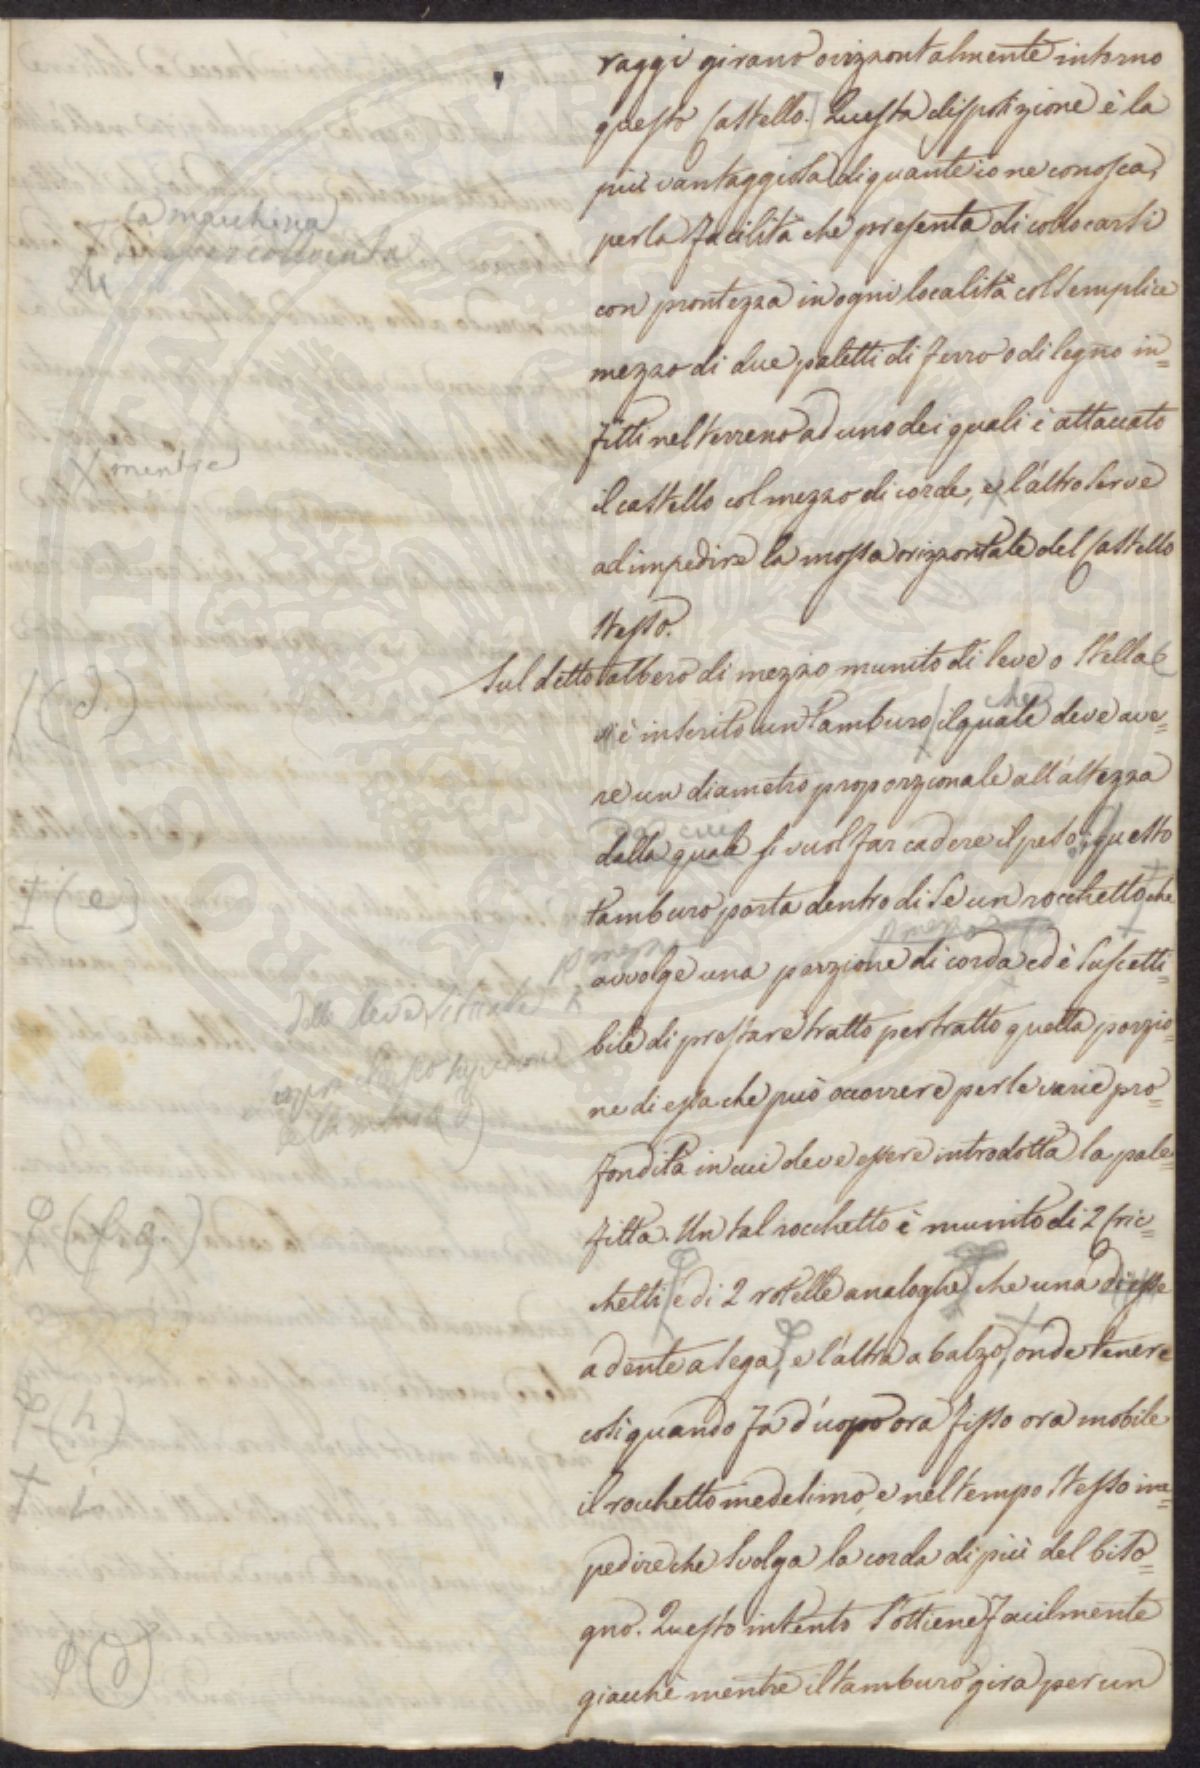 raggi girano orizzontalmente intorno
questo Castello. Questa disposizione è la
più vantaggiosa di quante io ne conosca,
per la facilità che presenta di collocarsi
con prontezza in ogni località col semplice
mezzo di due paletti di ferro o di legno in=
fitti nel terreno ad uno dei quali è attaccato
il castello col mezzo di corde, e l'altro serve
ad impedire la mossa orizzontale del Castello
stesso.
Sul detto albero di mezzo munito di leve o stella
vi è inserito un tamburo il quale deve ave=
che
re un diametro proporzionale all'altezza
da cui
dalla quale si vuol far cadere il peso; questo
tamburo porta dentro di se un rocchetto che
avvolge una porzione di corda ed è suscetti=
bile di prestare tratto per tratto quella porzio=
ne di essa che può occorrere per le varie pro=
fondità in cui deve essere introdotta la pale=
fitta. Un tal rocchetto è munito di 2 cric=
chetti e di 2 rotelle analoghe che una di esse
a dente a sega, e l'altra a balzo, onde tenere
così quando fa d'uopo ora fisso ora mobile
il rocchetto medesimo, e nel tempo stesso im=
pedire che svolga la corda di più del biso=
gno. Questo intento s'ottiene facilmente
giacchè mentre il tamburo gira per un
(a macchina
mentre
(d.)
(e)
delle leve
(f g)
(h)
i